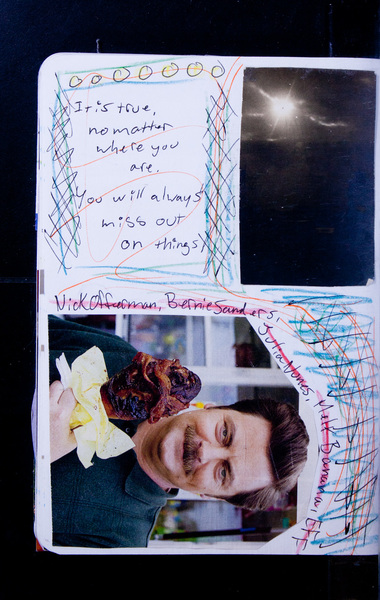 It is true,
no matter
where you
are.
You will always
miss out
on things
Nick Offerman, Bernie Sanders, Julia Nunes, Matt Bannana, Eff